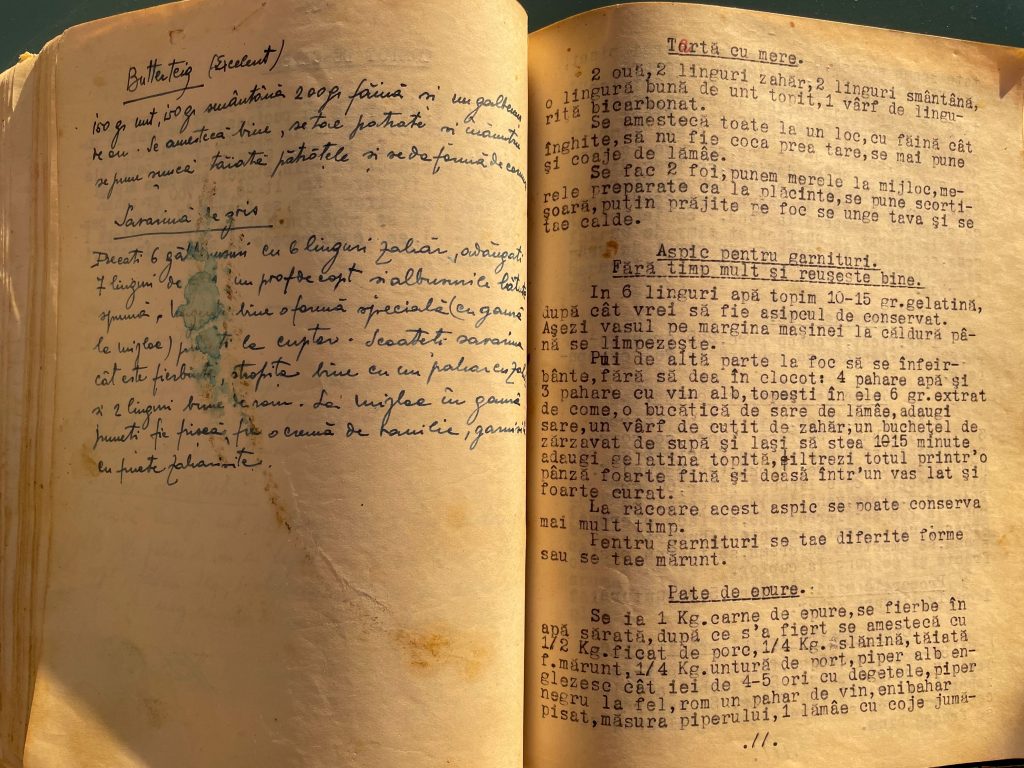 Butterteig (Excelent)
150 gr unt, 150 gr smântână 200 gr făină si un galbenu
de ou. Se amestecă bine, se taie patrate si înăuntru
se pune nucă tăiată pătrățele si se da formă de cornu
Savarină de gris
Frecati 6 gălbenusuri cu 6 linguri zahăr, adăugati
7 linguri de un praf de copt si albusurile bătute
spumă, bine o formă specială (cu gaură
la mijloc) la cuptor. Scoateti savarina
cât este fierbinte, stropita bine cu un pahar cu
si 2 linguri bune de rom. La mijloc în gaură
puneti fie friscă, fie o cremă de vanilie, garnisiti
cu fructe zaharisite.
Tartă cu mere.
2 ouă,2 linguri zahăr,2 linguri smântână,
o lingură bună de unt topit,1 vârf de lingu-
riță bicarbonat.
Se amestecă toate la un loc,cu făină cât
înghite,să nu fie coca prea tare,se mai pune
și coaje de lămâe.
Se fac 2 foi,punem merele la mijloc,me-
rele preparate ca la plăcinte,se pune scorți-
șoară,puțin prăjite pe foc se unge tava și se
tae calde.
Aspic pentru garnituri.
Fără timp mult și reușește bine.
In 6 linguri apă topim 10-15 gr.gelatină,
după cât vrei să fie asipcul de conservat.
Așezi vasul pe margina mașinei la căldură pâ-
nă se limpezește.
Pui de altă parte la foc să se înfeir-
bânte,fără să dea în clocot: 4 pahare apă și
3 pahare cu vin alb,topești în ele 6 gr.extrat
de come,o bucățică de sare de lămâe,adaugi
sare,un vârf de cuțit de zahăr,un buchețel de
zărzavat de supă și lași să stea 1015 minute
adaugi gelatina topită,filtrezi totul printr'o
pânză foarte fină și deasă într'un vas lat și
foarte curat.
La răcoare acest aspic se poate conserva
mai mult timp.
Pentru garnituri se tae diferite forme
sau se tae mărunt.
Pate de epure.
Se ia 1 Kg.carne de epure,se fierbe în
apă sărată,după ce s'a fiert se amestecă cu
1/2 Kg.ficat de porc,1/4 Kg. slănină,tăiată
f.mărunt,1/4 Kg.untură de port,piper alb en-
glezesc cât iei de 4-5 ori cu degetele,piper
negru la fel,rom un pahar de vin,enibahar
pisat,măsura piperului,1 lămâe cu coje jumă-
.11.